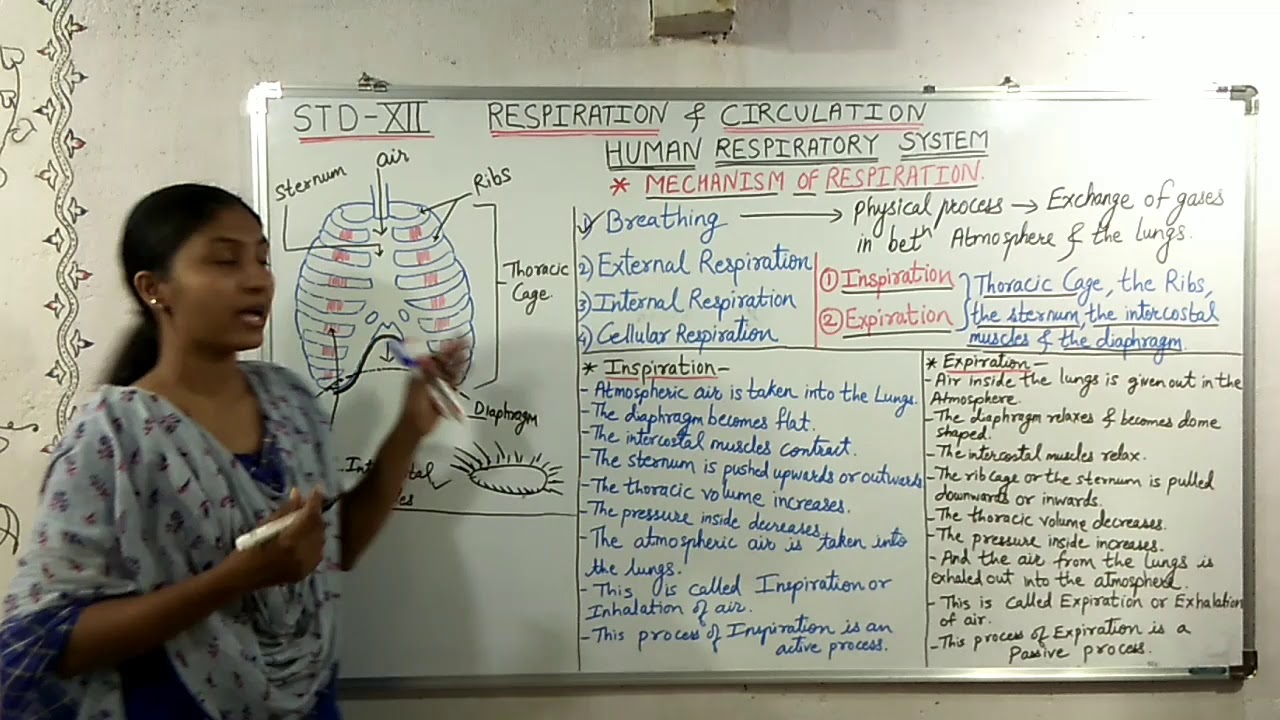 STD-XII RESPIRATION & CIRCULATION
HUMAN RESPIRATORY SYSTEM
* MECHANISM OF RESPIRATION.
air
Sternum
Ribs
Thoracic
Cage.
Diaphragm
1) Breathing → Physical process → Exchange of gases
in betⁿ Atmosphere & the lungs.
2) External Respiration
3) Internal Respiration
4) Cellular Respiration
① Inspiration
② Expiration
Thoracic Cage, the Ribs,
the sternum, the intercostal
muscles & the diaphragm.
* Inspiration-
- Atmospheric air is taken into the Lungs.
- The diaphragm becomes flat.
- The intercostal muscles contract.
- The sternum is pushed upwards or outwards
- The thoracic volume increases.
- The pressure inside decreases
- The atmospheric air is taken into
the lungs.
- This is called Inspiration or
Inhalation of air.
- This process of Inspiration is an
active process.
* Expiration-
- Air inside the lungs is given out in the
Atmosphere.
- The diaphragm relaxes & becomes dome
shaped.
- The intercostal muscles relax.
- The rib cage or the sternum is pulled
downwards or inwards.
- The thoracic volume decreases.
- The pressure inside increases.
- And the air from the lungs is
exhaled out into the atmosphere.
- This is called Expiration or Exhalation
of air.
- This process of Expiration is a
Passive process.